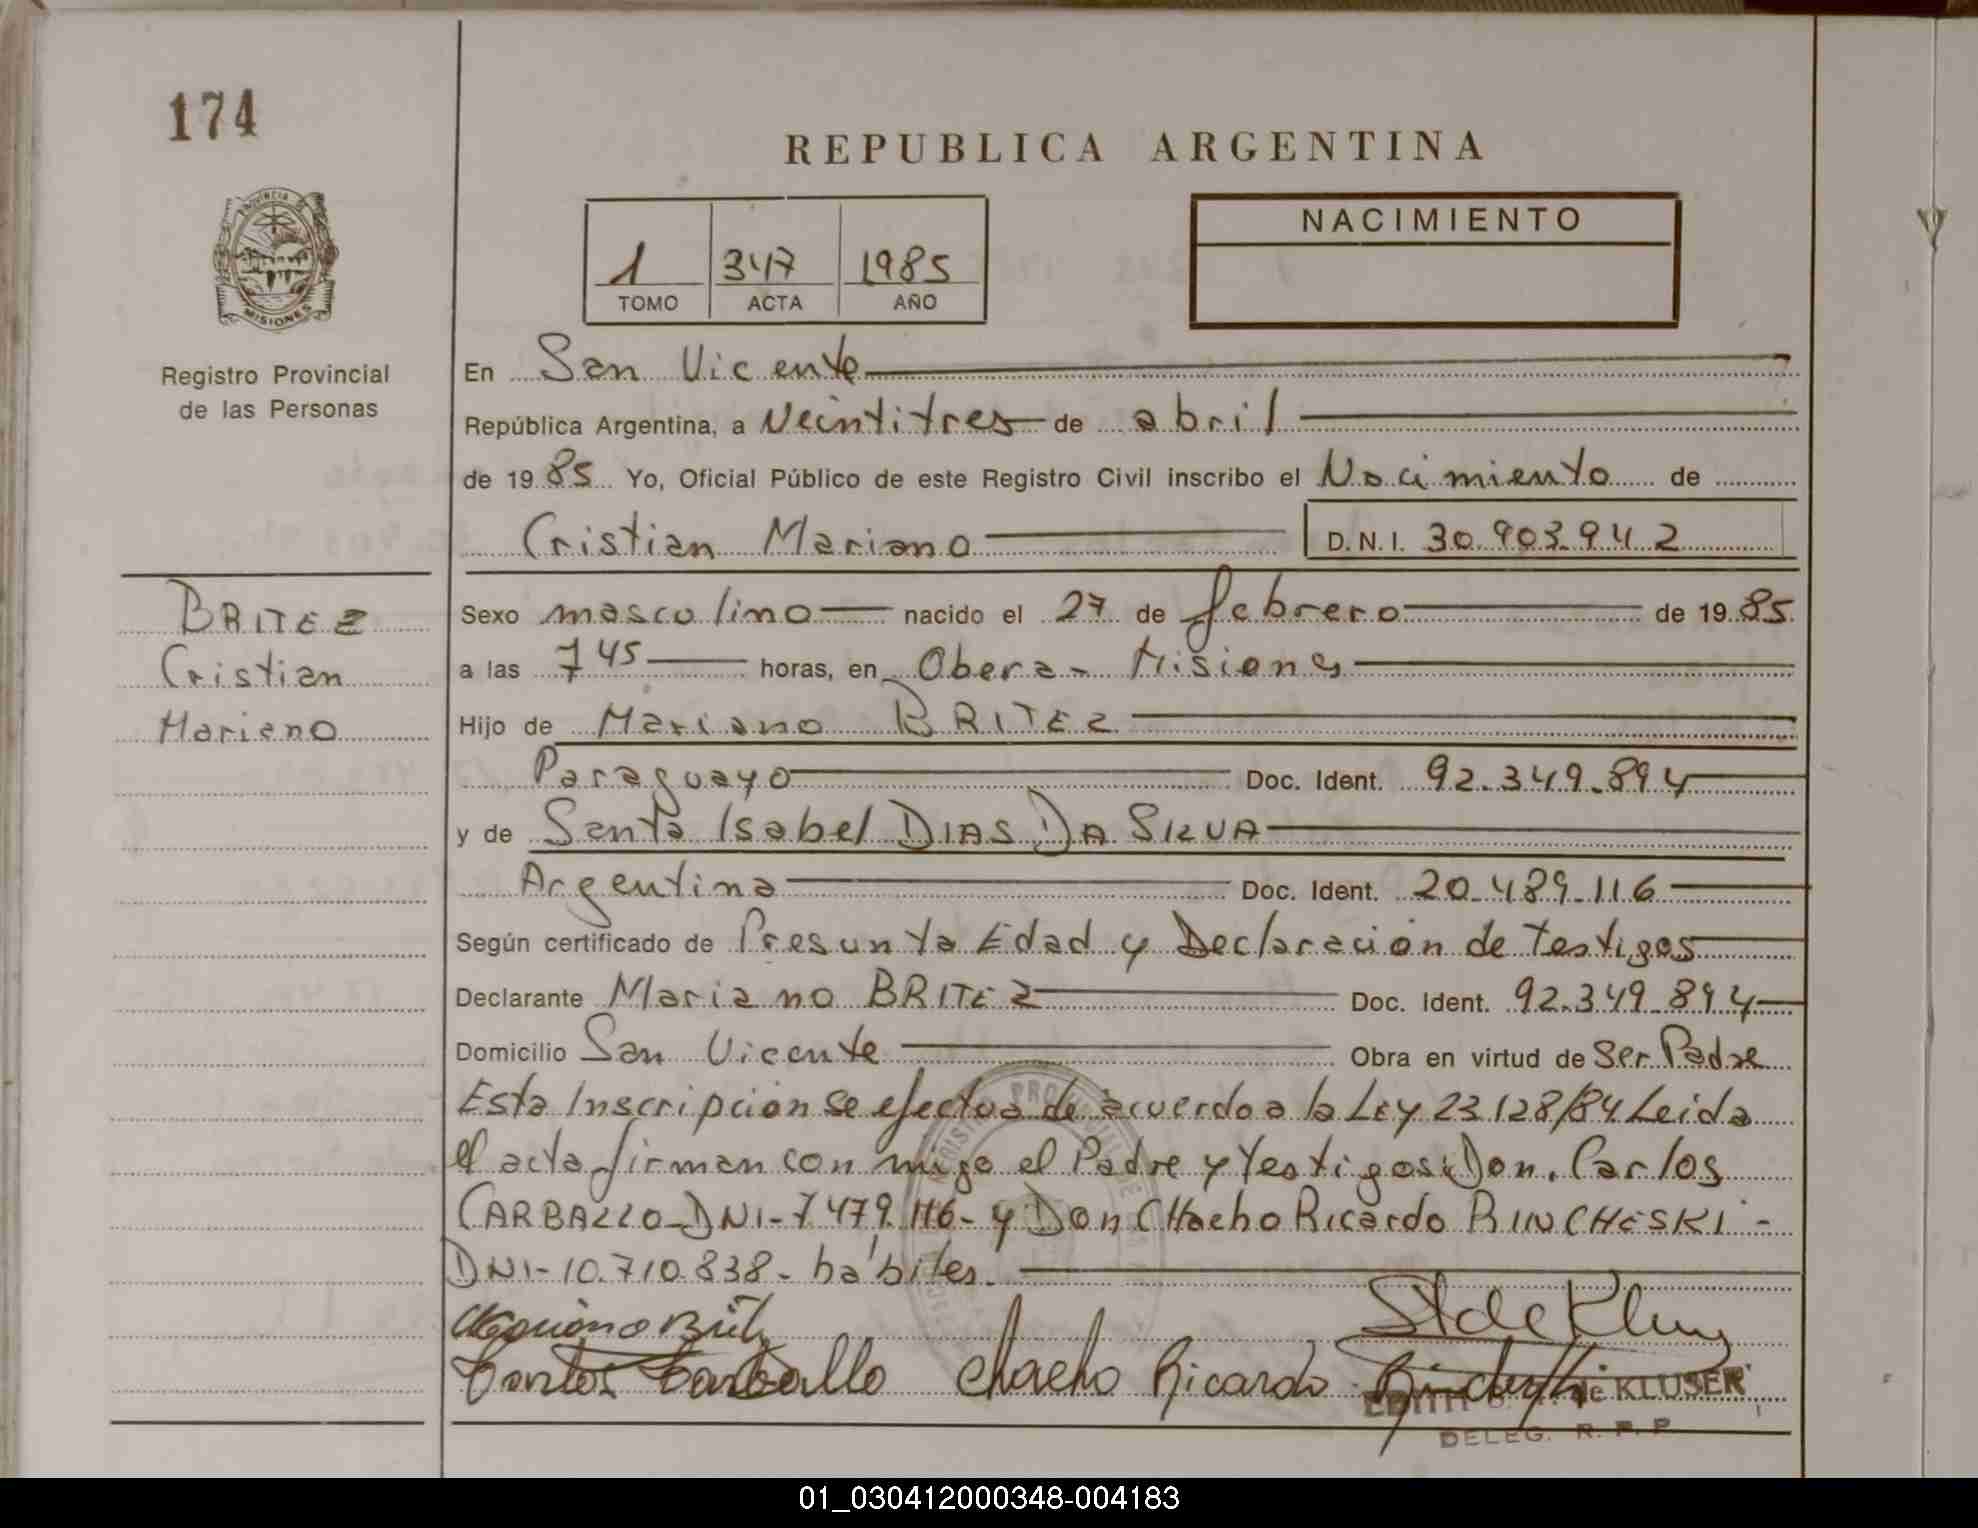 174
REPUBLICA ARGENTINA
PROVINCIA DE
MISIONES
1 347 1985
TOMO ACTA AÑO
NACIMIENTO
Registro Provincial
de las Personas
En San Vicente
República Argentina, a Veintitres de abril
de 1985 Yo, Oficial Público de este Registro Civil inscribo el Nacimiento de
Cristian Mariano D.N.I. 30.903.942
BRITEZ
Cristian
Mariano
Sexo masculino nacido el 27 de febrero de 1985
a las 7 45 horas, en Obera - Misiones
Hijo de Mariano BRITEZ
Paraguayo Doc. Ident. 92.349.894
y de Santa Isabel DIAS DA SILVA
Argentina Doc. Ident. 20.489.116
Según certificado de Presunta Edad y Declaración de testigos
Declarante Mariano BRITEZ Doc. Ident. 92.349.894
Domicilio San Vicente Obra en virtud de Ser Padre
Esta Inscripción se efectua de acuerdo a la LEY 23128/84 Leida
el acta firman con migo el Padre y Testigos: Don. Carlos
CARBALLO - DNI - 7479.116 - y Don CHacho Ricardo RINCHESKI -
DNI - 10.710.838 - hábiles.
Mariano Britez
Carlos Carballo Chacho Ricardo
EDITH de KLUSER
DELEG. R. P. P
01_030412000348-004183